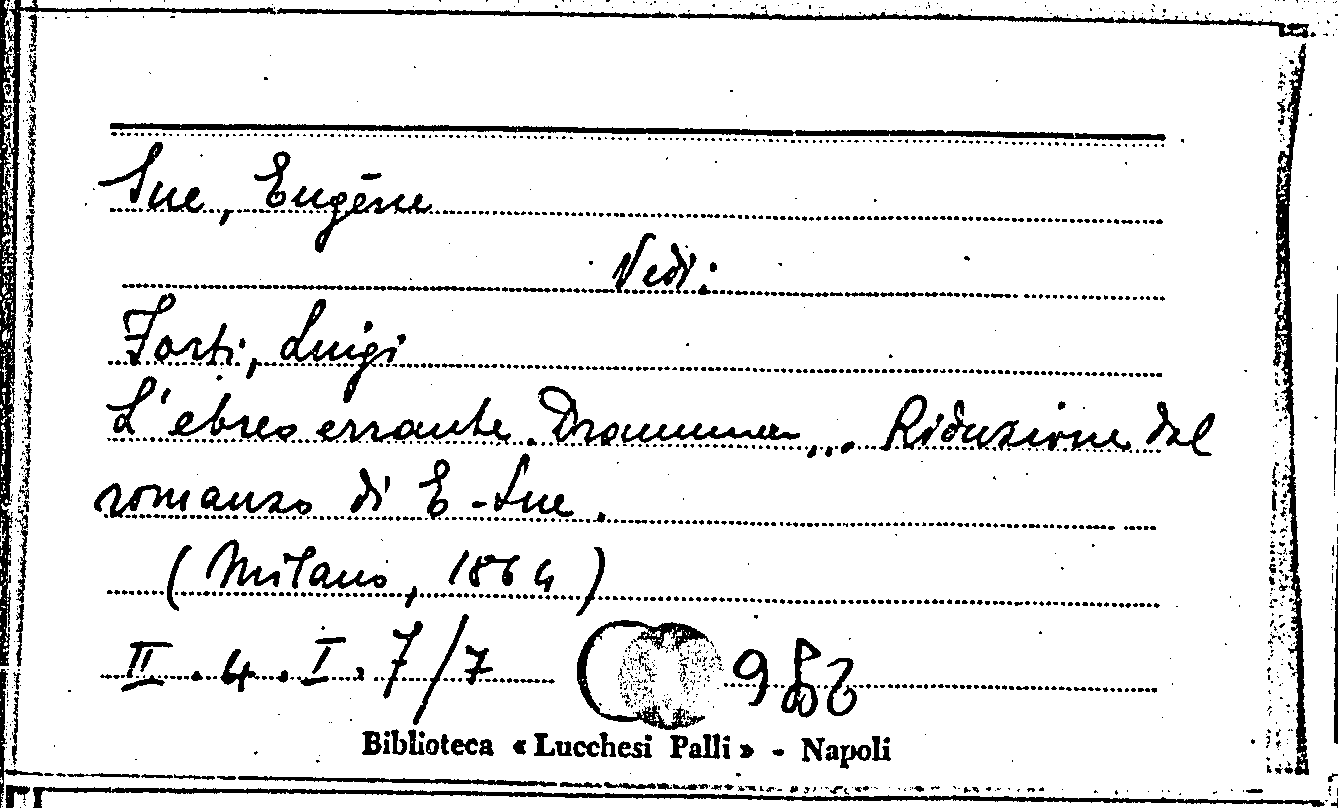 Sue, Eugène
Vedi:
Forti, Luigi
L'ebreo errante. Dramma... Riduzione dal
romanzo di E. Sue.
(Milano, 1864)
II.4.I.7/7
Biblioteca « Lucchesi Palli » - Napoli